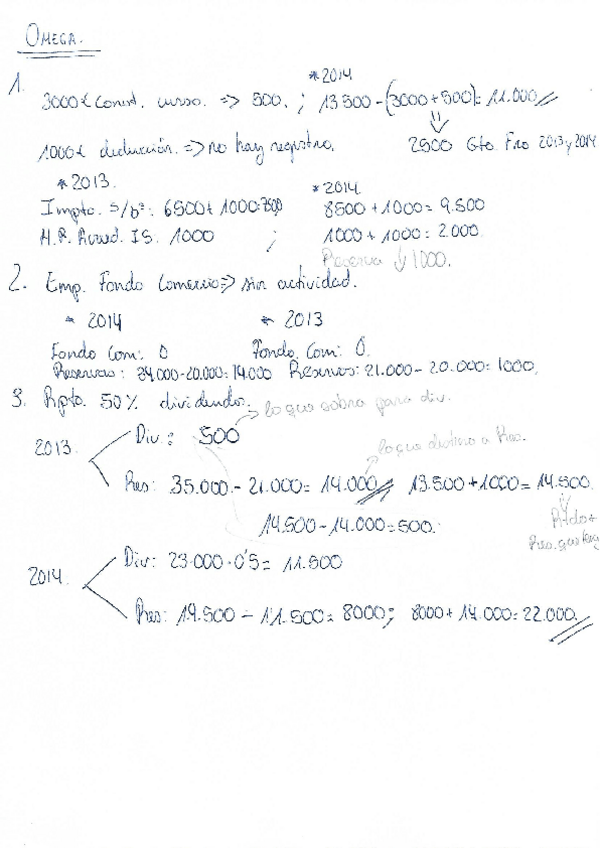 OMEGA.
1.
* 2014
3000€ const. curso. => 500. ; 13 500 - (3000 + 500) = 11.000
1000€ deducción. => no hay registro.
2500 Gto. Fro 2013 y 2014
* 2013.
* 2014.
Impto. s/bº: 6500 + 1000 = 7500
8500 + 1000 = 9.500
H.P. Acred. IS: 1000 ;
1000 + 1000 = 2.000.
Reserva ↓ 1000.
2. Emp. Fondo Comercio => sin actividad.
* 2014
* 2013
Fondo Com: 0
Fondo Com: 0.
Reservas: 34.000 - 20.000 = 14.000
Reservas: 21.000 - 20.000 = 1000.
3. Rpto. 50% dividendo.
lo que sobra para div.
2013.
Div.: 500
lo que destino a Res.
Res: 35.000 - 21.000 = 14.000
13.500 + 1000 = 14.500.
14.500 - 14.000 = 500.
Rtdo +
Res. que
Div: 23.000 · 0'5 = 11.500
2014.
Res: 19.500 - 11.500 = 8000; 8000 + 14.000 = 22.000.